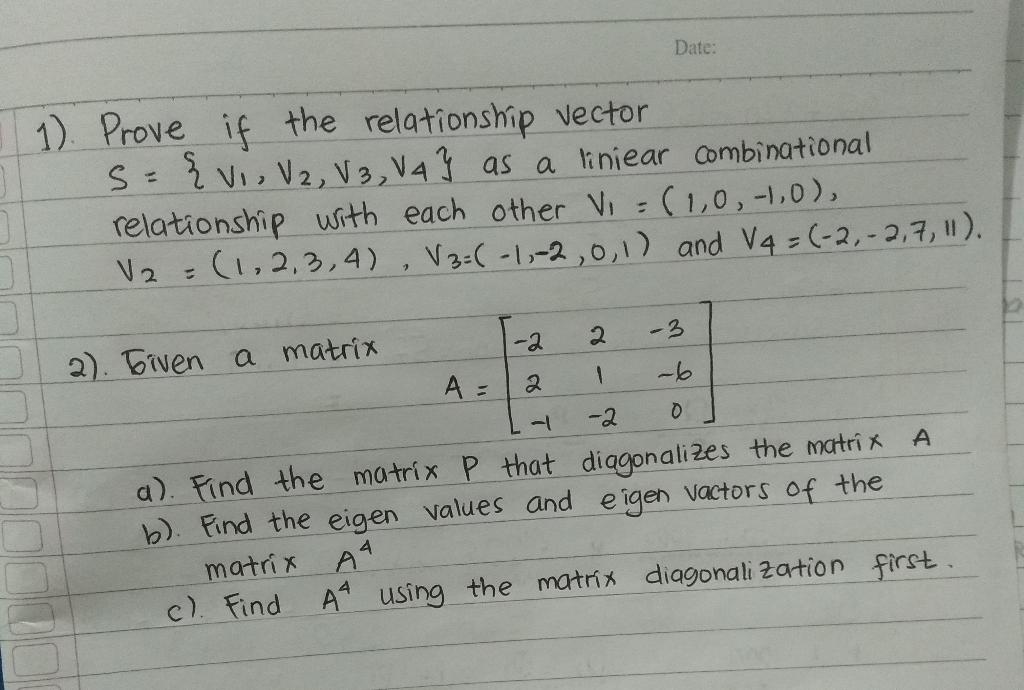 Date:
1). Prove if the relationship vector
S = { V1, V2, V3, V4 } as a liniear combinational
relationship with each other V1 = (1,0,-1,0),
V2 = (1,2,3,4), V3=(-1,-2,0,1) and V4 = (-2,-2,7,11).
2). Given a matrix
A = [ -2 2 -3
2 1 -6
-1 -2 0 ]
a). Find the matrix P that diagonalizes the matrix A
b). Find the eigen values and eigen vactors of the
matrix A⁴
c). Find A⁴ using the matrix diagonalization first.